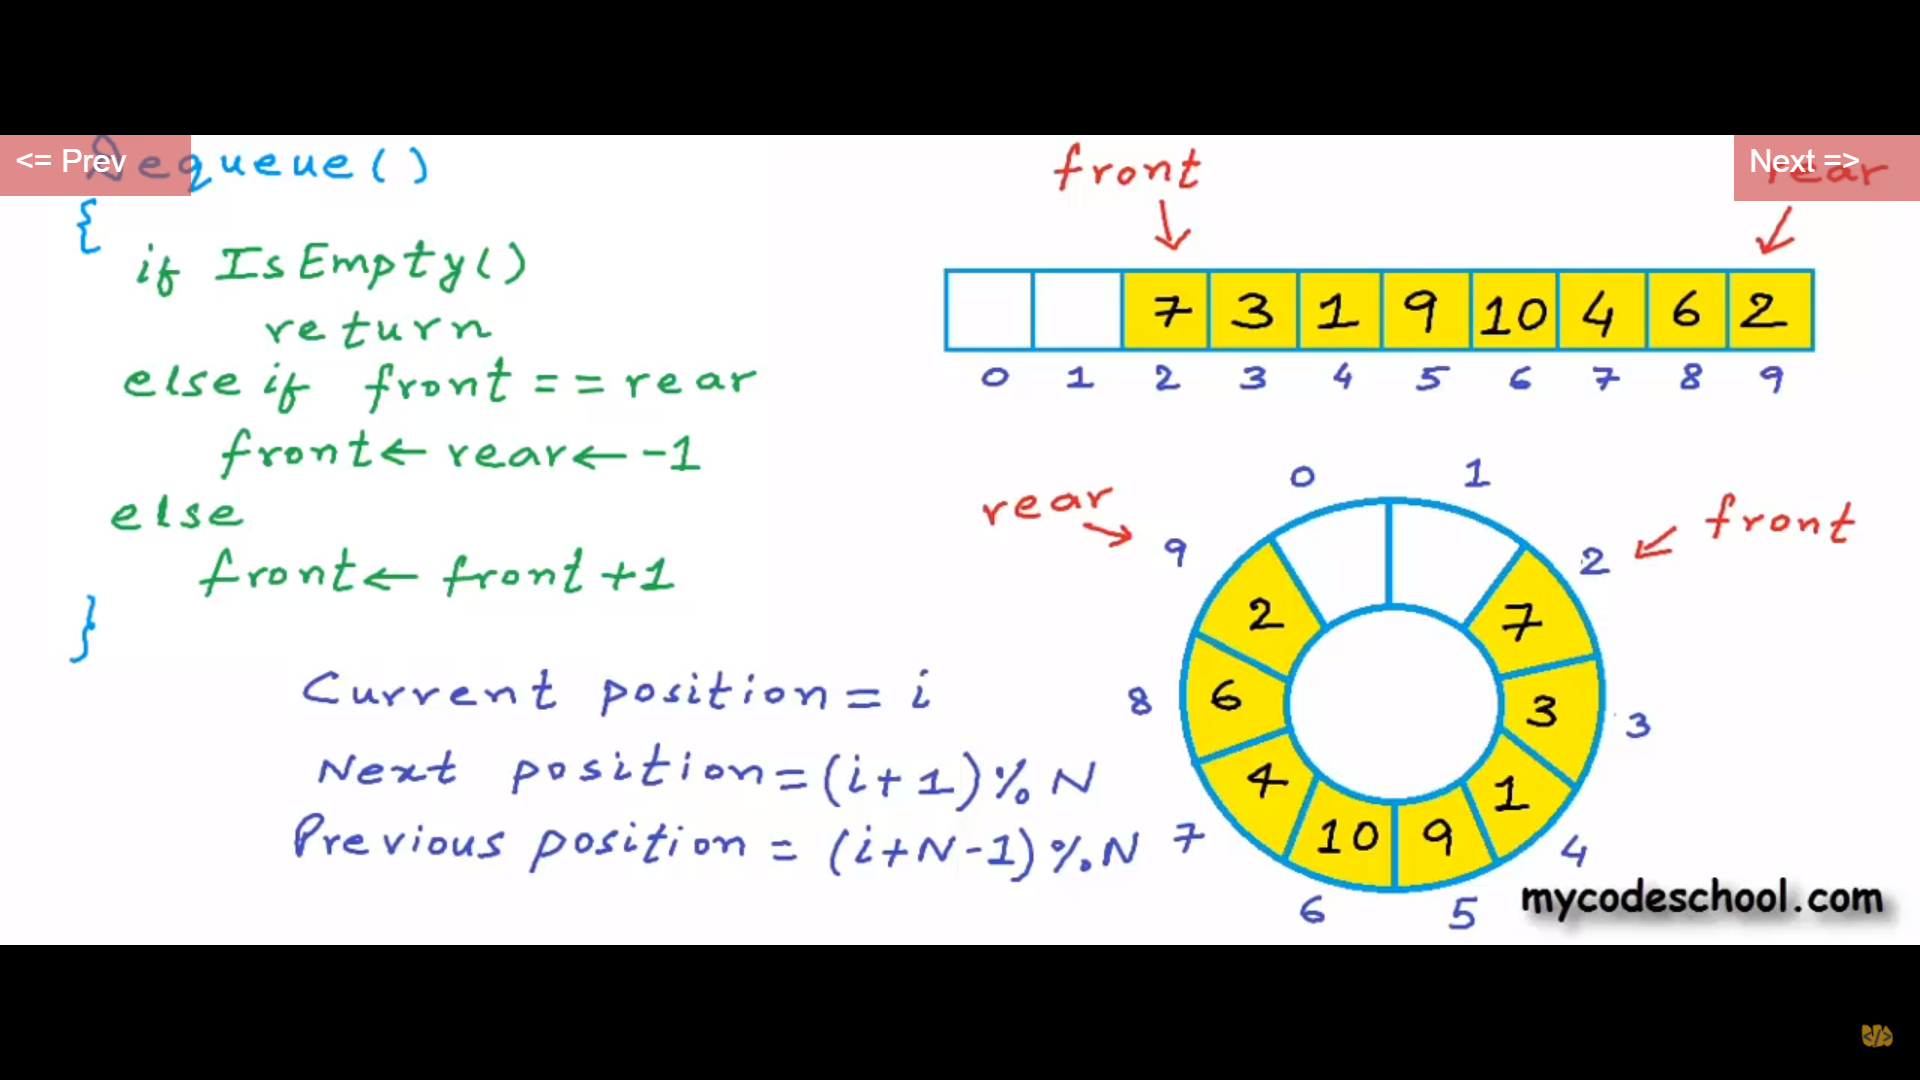 <= Prev
Dequeue()
{
if IsEmpty()
return
else if front == rear
front ← rear ← -1
else
front ← front +1
}
Current position = i
Next position = (i+1)% N
Previous position = (i+N-1)%N
Next =>
front
rear
7 3 1 9 10 4 6 2
0 1 2 3 4 5 6 7 8 9
0 1
rear
front
9 2
2 7
8 6 3 3
4 1
7 10 9 4
6 5
mycodeschool.com